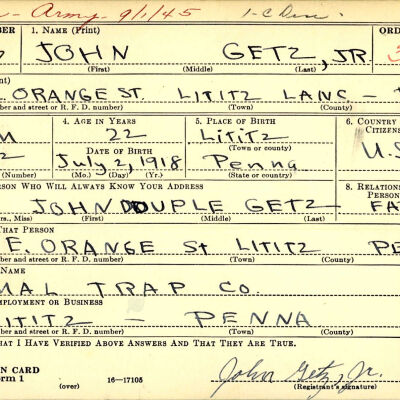 Army 9/1/45 1-C Disc.
BER 1. NAME (Print) ORD
JOHN GETZ, JR.
(First) (Middle) (Last)
ORANGE ST. LITITZ LANC -
ber and street or R. F. D. number) (Town) (County)
4. AGE IN YEARS 5. PLACE OF BIRTH 6. COUNTRY
22 LITITZ CITIZENS
DATE OF BIRTH (Town or county)
July 2, 1918 Penna U.S
(Number) (Mo.) (Day) (Yr.) (State or country)
ERSON WHO WILL ALWAYS KNOW YOUR ADDRESS 8. RELATIONS
PERSON
JOHN DOUPLE GETZ FA
rs., Miss) (First) (Middle) (Last)
THAT PERSON
E. ORANGE St LITITZ PE
ber and street or R. F. D. number) (Town) (County)
NAME
MAL TRAP CO.
MPLOYMENT OR BUSINESS
ITITZ - PENNA
ber and street or R. F. D. number) (Town) (County)
HAT I HAVE VERIFIED ABOVE ANSWERS AND THAT THEY ARE TRUE.
ON CARD
orm 1 (over) 16—17105
John Getz, Jr.
(Registrant's signature)